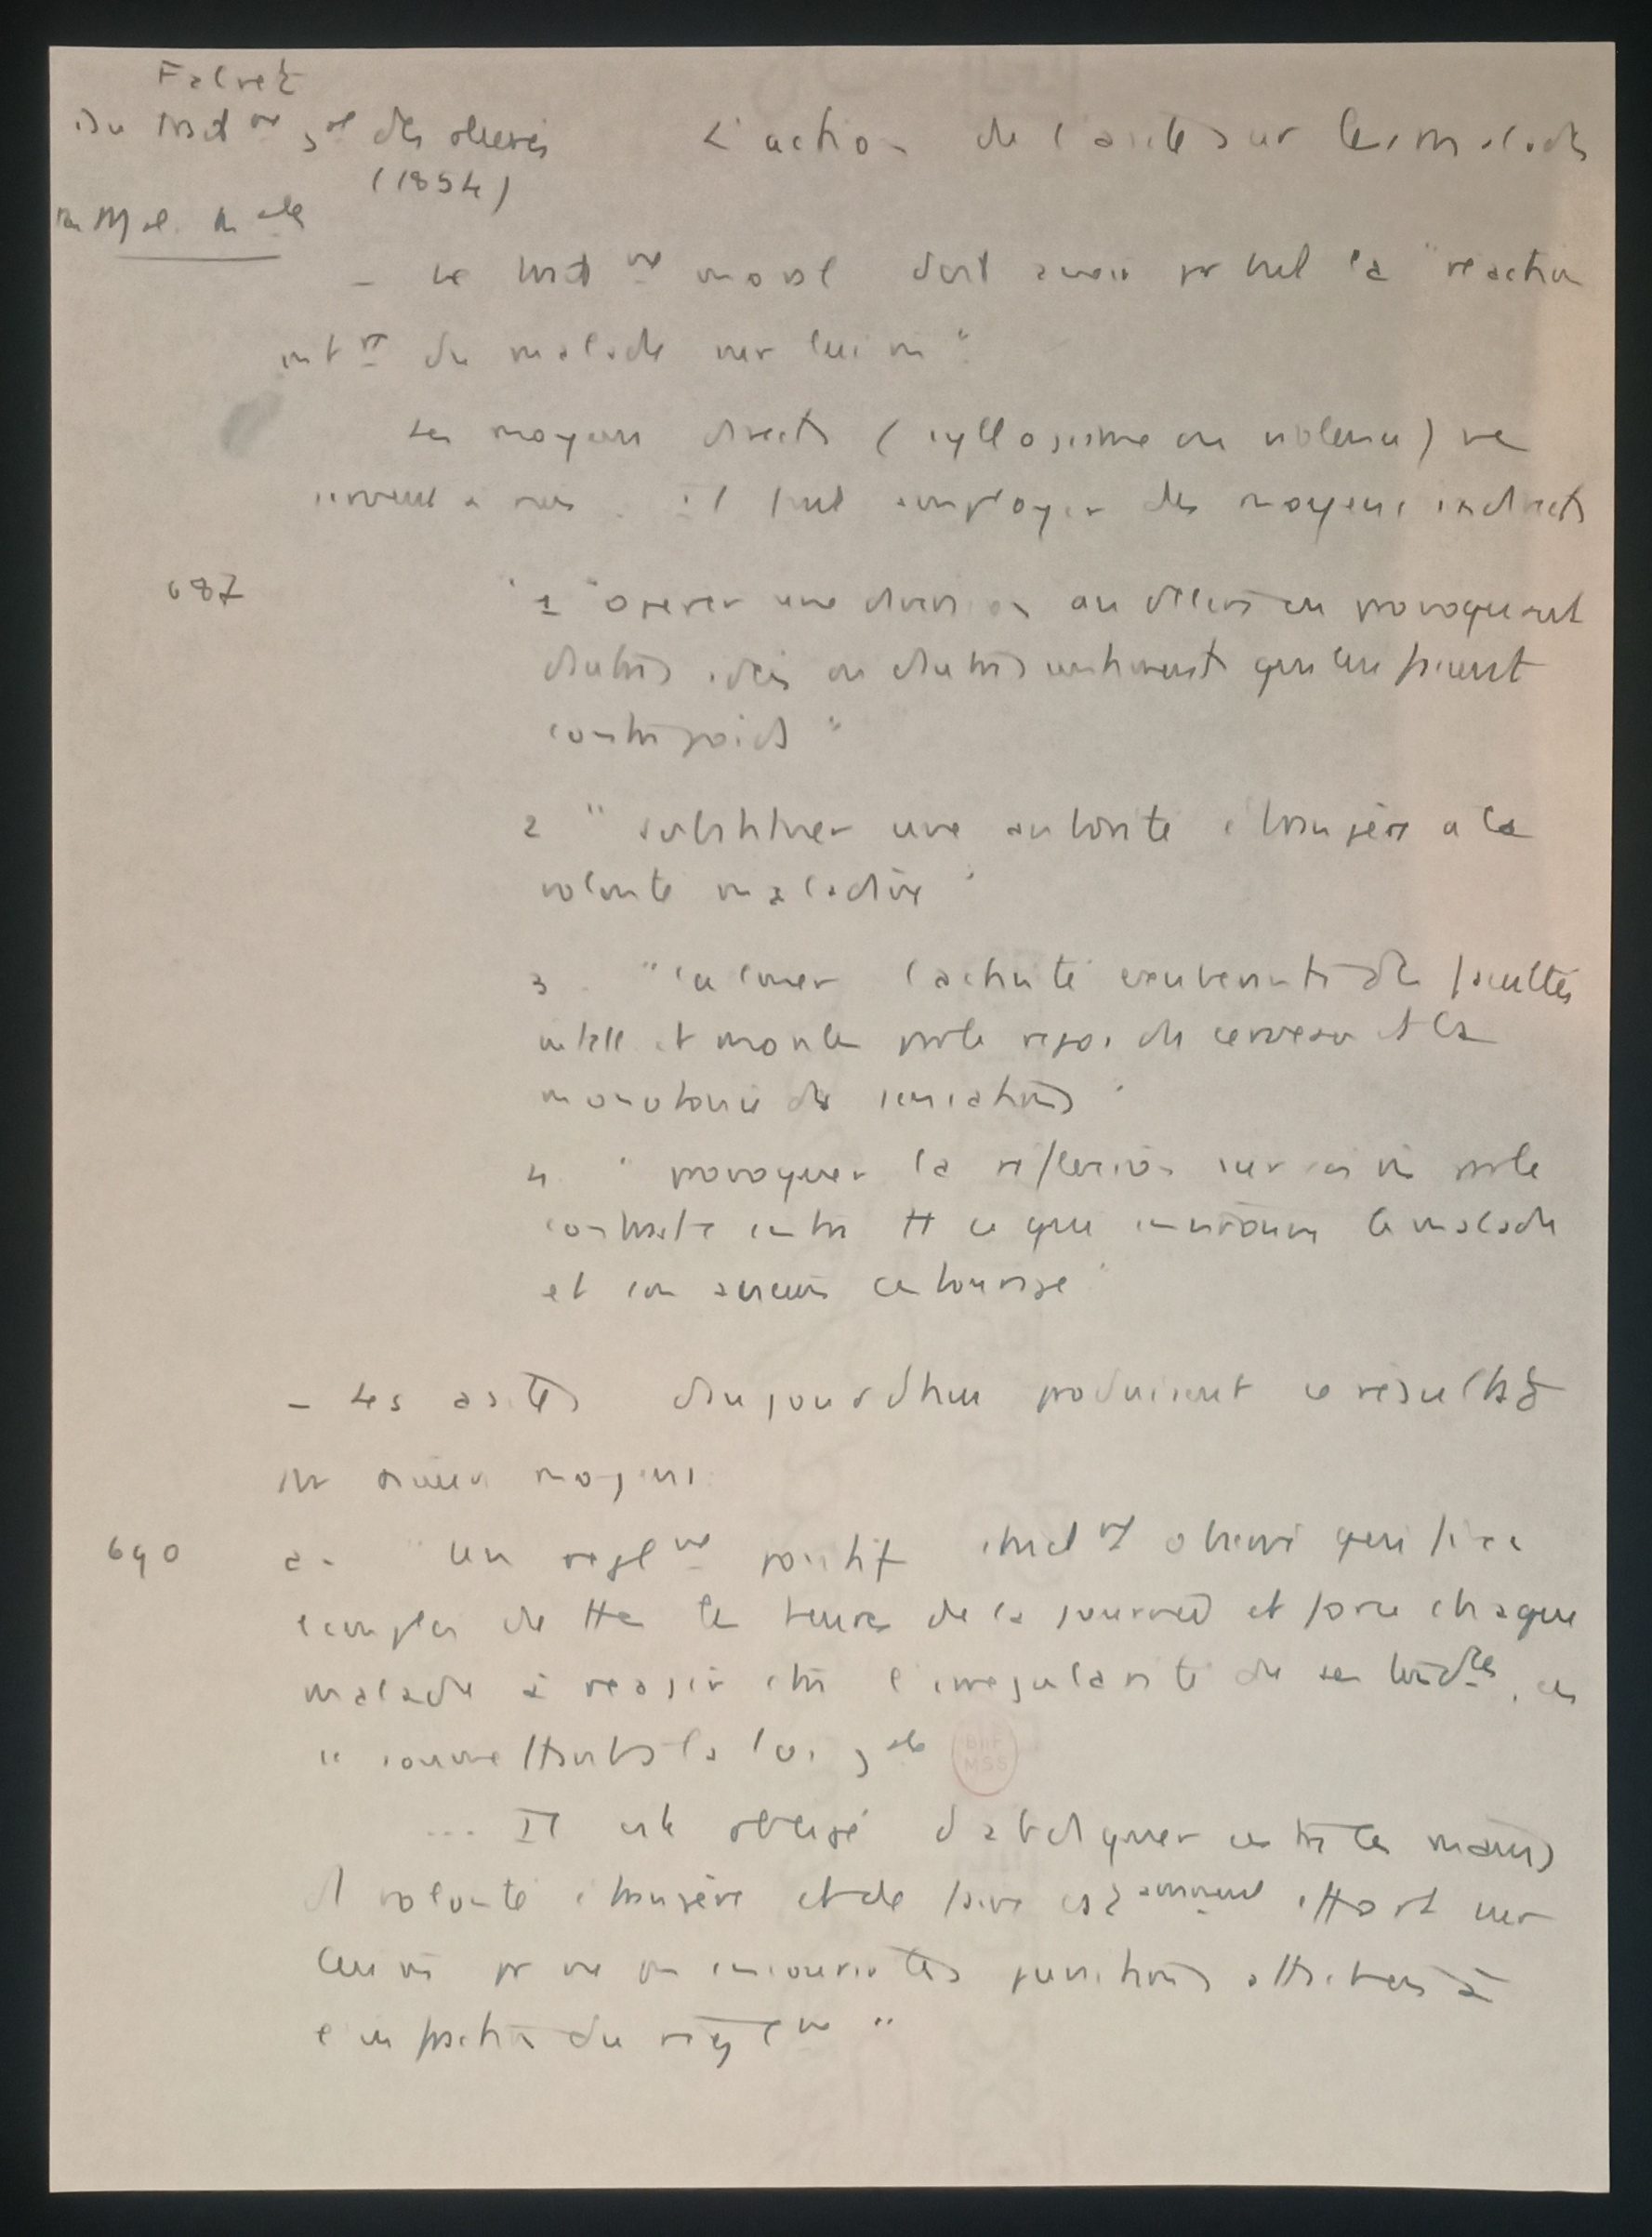 Falret
Du trait^mt g^al des aliénés
(1854)
L'action de l'asile sur les malades
in Mal. m^ales
- Le trait^mt moral doit avoir pr but la "réaction
int^re du malade sur lui m"
Les moyens directs (syllogisme ou violence) ne
servent à rien. Il faut employer des moyens indirects
687
1 "opérer une diversion au délire en provoquant
d'autres idées ou d'autres sentiments qui lui fassent
contrepoids"
2 "substituer une autorité étrangère à la
volonté maladive"
3 "calmer l'activité exubérante des facultés
intell et morales par le repos du cerveau et la
monotonie des sensations"
4 "provoquer la réflexion sur soi m par le
contraste entre tt ce qui environne le malade
et son ancien entourage"
- Les asiles d'aujourd'hui produisent ce résultat
par moyens
690
a- "Un règl^mt positif strict^mt observé qui fixe
l'emploi de ttes les heures de la journée et force chaque
malade à réagir ctre l'irrégularité de ses tend^ces, en
se soumettant à la loi g^ale
... Il est obligé d'abdiquer entre les mains
d'1 volonté étrangère et de faire effort sur
lui m pr ne pas encourir les punitions attachées à
l'infraction du règl^mt"
BnF
MSS